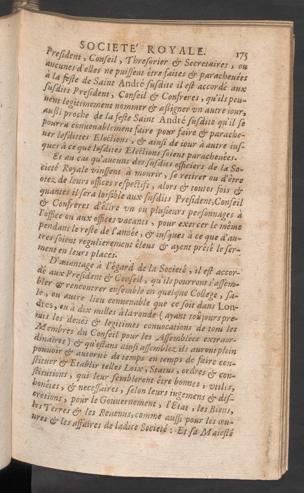 SOCIETÉ ROYALE. 175
President, Conseil, Thresorier & Secretaires, ou
aucunes d'elles ne puissent être faites & parachevées
à la feste de Saint André susdite il est accordé aux
susdits President, Conseil & Confreres, qu'ils peu-
nent legitimement nommer & assigner un autre jour,
aussi proche de la feste Saint André susdite qu'il se
pourra convenablement faire pour faire & parache-
ver lesdites Elections, & ainsi de jour à autre jus-
ques à ce que lesdites Elections soient parachevées.
Et au cas qu'aucuns des susdits officiers de la So-
cieté Royale vinssent à mourir, se retirer ou d'être
otez de leurs offices respectifs, alors & toutes fois &
quantes il sera loisible aux susdits President, Conseil
& Confreres d'élire un ou plusieurs personnages à
l'office ou aux offices vacants, pour exercer le même
pendant le reste de l'année, & jusques à ce que d'au-
tres soient regulierement éleus & ayent prété le ser-
ment en leurs places.
D'avantage à l'égard de la Societé, il est accor-
dé aux President & Conseil, qu'ils pourrons s'assem-
bler & rencontrer ensemble en quelque College, sa-
le, ou autre lieu convenable que ce soit dans Lon-
dres, ou à dix milles à la ronde (ayant toûjours pre-
mis les deuës & legitimes convocations de tous les
Membres du Conseil pour les Assemblées extraor-
dinaires) & qu'estans ainsi assemblez ils auront plein
pouvoir & autorité de temps en temps de faire con-
stituer & Etablir telles Loix, Statuts, ordres & con-
stitutions, qui leur sembleront être bonnes, utiles,
honêtes, & necessaires, selon leurs jugemens & dis-
cretions, pour le Gouvernement, l'Etat, les Biens,
les Terres & les Revenus, comme aussi pour les œu-
vres & les affaires de ladite Societé: Et sa Majesté